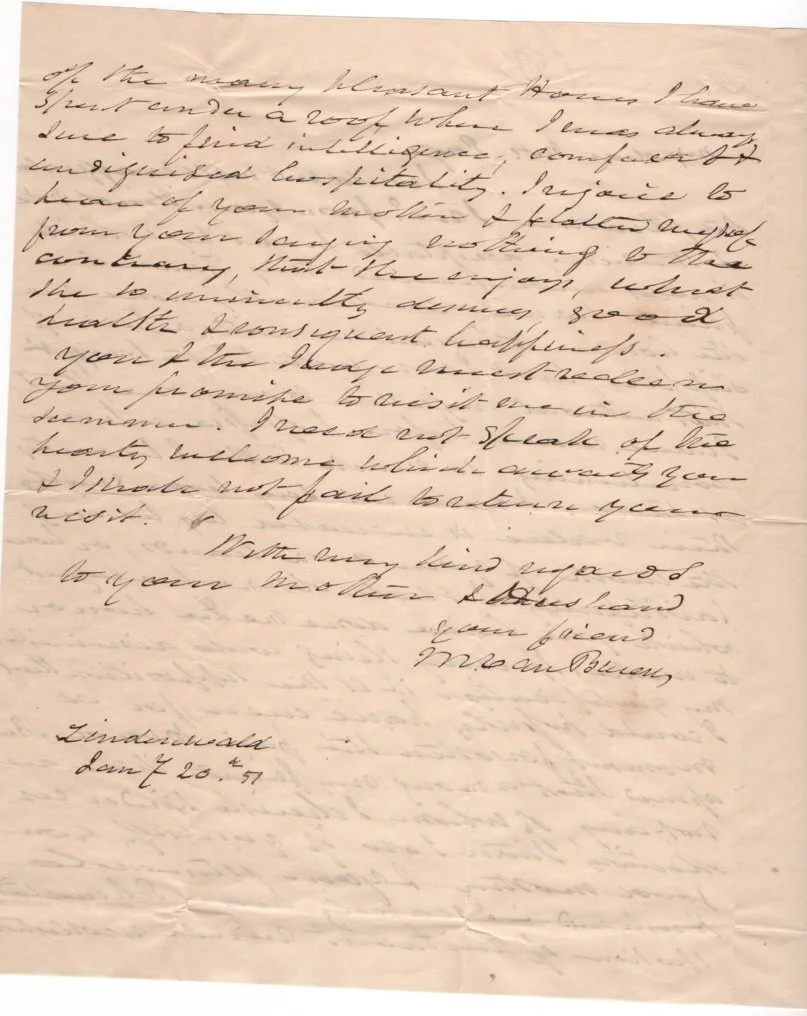 of the many pleasant Hours I have
spent under a roof where I was always
sure to find intelligence, comfort &
undisguised hospitality. I rejoice to
hear of your Mother & flatter myself
from your saying nothing to the
contrary, that she enjoys, what
she so eminently deserves, good
health & consequent happiness.
You & the Judge must redeem
your promise to visit me in the
summer. I need not speak of the
hearty welcome which awaits you
& I shall not fail to return your
visit.
With very kind regards
to your Mother & husband
your friend
M Van Buren
Lindenwald
Jany 20th 51